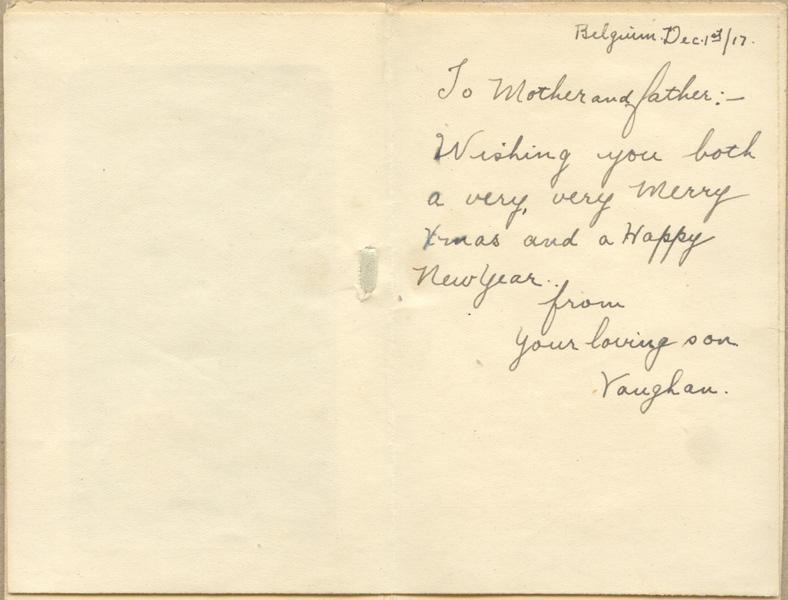 Belgium. Dec. 1st/17.
To Mother and father:—
Wishing you both
a very, very Merry
Xmas and a Happy
New Year.
from
your loving son
Vaughan.